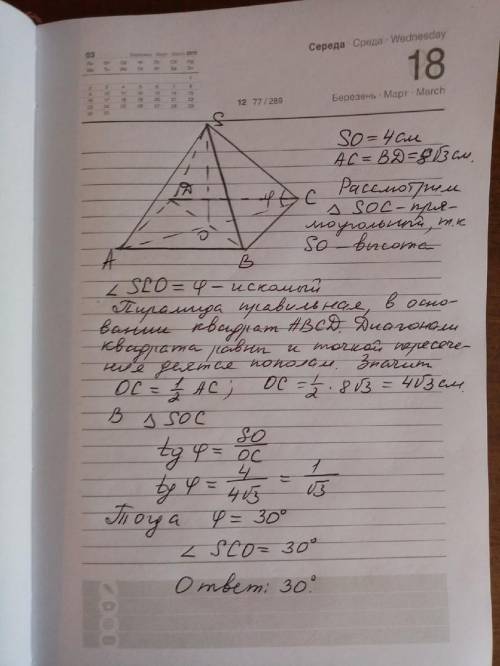 03 Березень · Март · March
Середа · Среда · Wednesday
18
12 77 / 289
Березень · Март · March
S
A
B
C
D
O
φ
SO = 4 см
AC = BD = 8√3 см.
Рассмотрим
△ SOC - пря-
моугольный, т.к
SO - высота
∠ SCO = φ - искомый
Пирамида правильная, в осно-
вании квадрат ABCD. Диагонали
квадрата равны и точкой пересече-
ния делятся пополам. Значит
OC = 1/2 AC; OC = 1/2 · 8√3 = 4√3 см.
В △ SOC
tg φ = SO/OC
tg φ = 4/4√3 = 1/√3
Тогда φ = 30°
∠ SCO = 30°
Ответ: 30°.